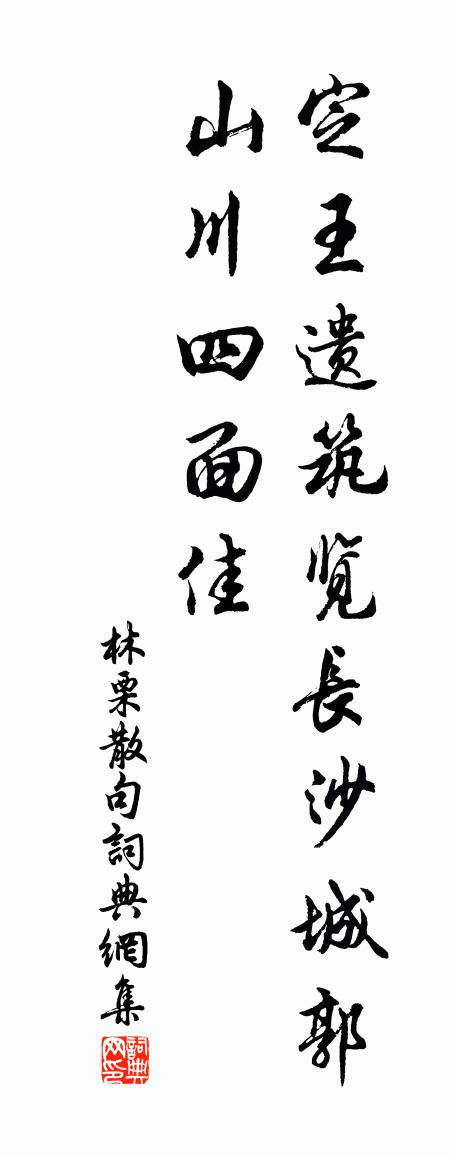 定王遗筑览長沙城郭
山川四面佳
林栗散句詞典網集
詞典网印